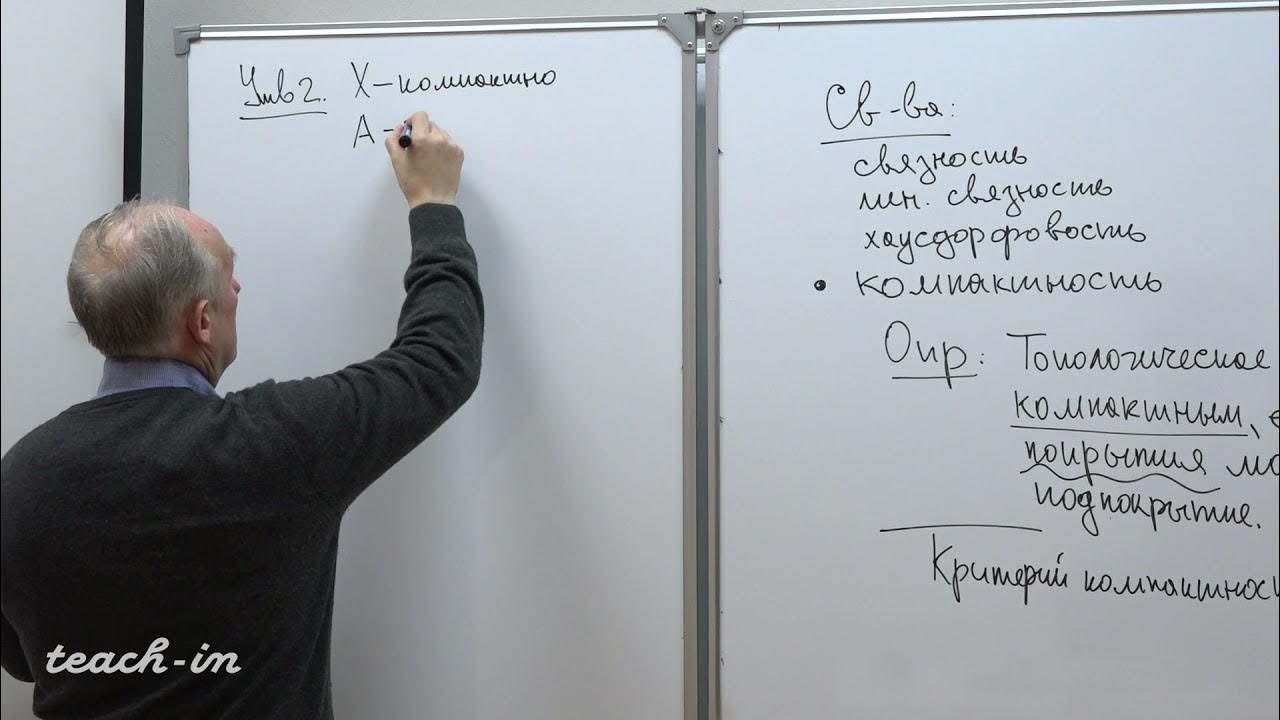 Утв 2. X – компактно
A –
Св-ва:
связность
лин. связность
хаусдорфовость
• компактность
Опр: Топологическое
компактным,
покрытия мо
подпокрытие.
Критерий компактнос
teach-in